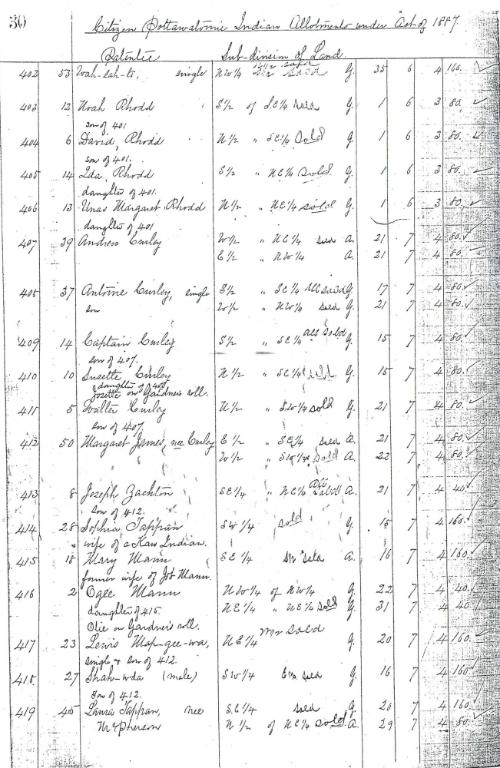 30 Citizen Pottawatomie Indian Allotments under Act of 1887.
Patentee Sub-division of Land
402 53 Wah-sah-to, single N.W.¼ sold G. 35 6 4 160.
403 12 Noah Rhodd S.½ of S.E.¼ G. 1 6 3 80.
son of 401
404 6 David, Rhodd N.½ " S.E.¼ Sold G. 1 6 3 80.
son of 401.
405 14 Ida, Rhodd S.½ " N.E.¼ sold G. 1 6 3 80.
daughter of 401.
406 13 Unas Margaret Rhodd N.½ " N.E.¼ sold G. 1 6 3 80.
daughter of 401
407 39 Andrew Curley W.½ " N.E.¼ A. 21 7 4 80.
E.½ " N.W.¼ A. 21 7 4 80.
408 37 Antoine Curley, single E.½ " S.E.¼ G. 17 7 4 80.
son W.½ " N.W.¼ G. 21 7 4 80.
409 14 Captain Curley S.½ " S.E.¼ All Sold G. 15 7 4 80.
son of 407.
410 10 Susette Curley N.½ " S.E.¼ sold G. 15 7 4 80.
daughter of 407
Josette on Gardner's roll.
411 5 Walter Curley N.½ " S.W.¼ sold G. 21 7 4 80.
son of 407.
412 50 Margaret James, nee Curley E.½ " S.E.¼ A. 21 7 4 80.
W.½ " S.W.¼ sold A. 22 7 4 80.
413 8 Joseph Zackton S.E.¼ " N.E.¼ All sold A. 21 7 4 40
Son of 412.
414 28 Sophia Tappan S.W.¼ sold G. 15 7 4 160.
wife of a Kaw Indian.
415 18 Mary Mann S.E.¼ A. 16 7 4 160.
former wife of Jos. Mann.
416 2 Ogee Mann N.W.¼ of N.W.¼ G. 22 7 4 40.
daughter of 415. N.E.¼ " N.E.¼ sold G. 31 7 4 40
Olie on Gardner's roll.
417 23 Lewis Map-gee-wa, N.E.¼ sold G. 20 7 4 160.
single & son of 412.
418 27 Shah-wda (male) S.W.¼ G. 16 7 4 160.
Son of 412.
419 45 Laura Tappan, nee S.E.¼ G. 20 7 4 160.
McPherson N.½ of N.E.¼ sold A. 29 7 4 80.